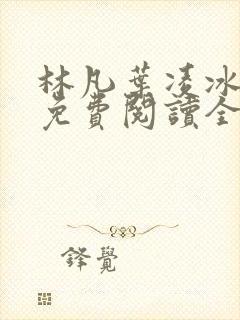 林凡葉凌冰
免費閱讀全
鋒覺